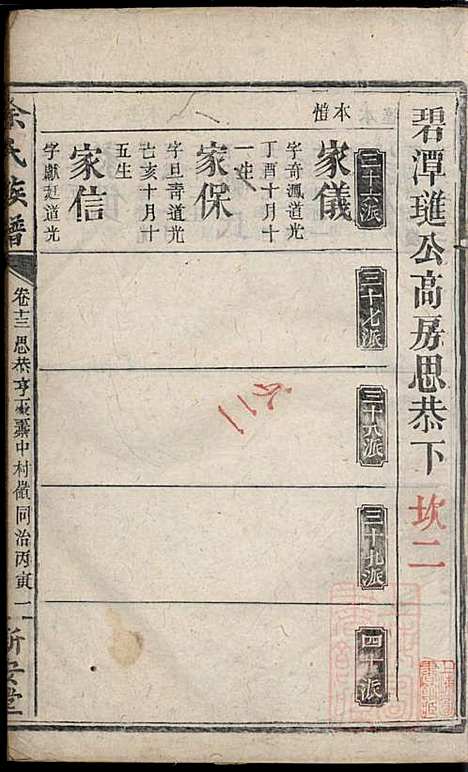 碧潭琟公高房思恭下
坎二
三十六派
三十七派
三十八派
三十九派
四十派
本愷
家儀
字奇瀛道光
丁酉十月十
一生
家保
字旦青道光
己亥十月十
五生
家信
字獻廷道光
氏族譜
卷十三 思恭亨
中村 同治丙寅
二
新安堂